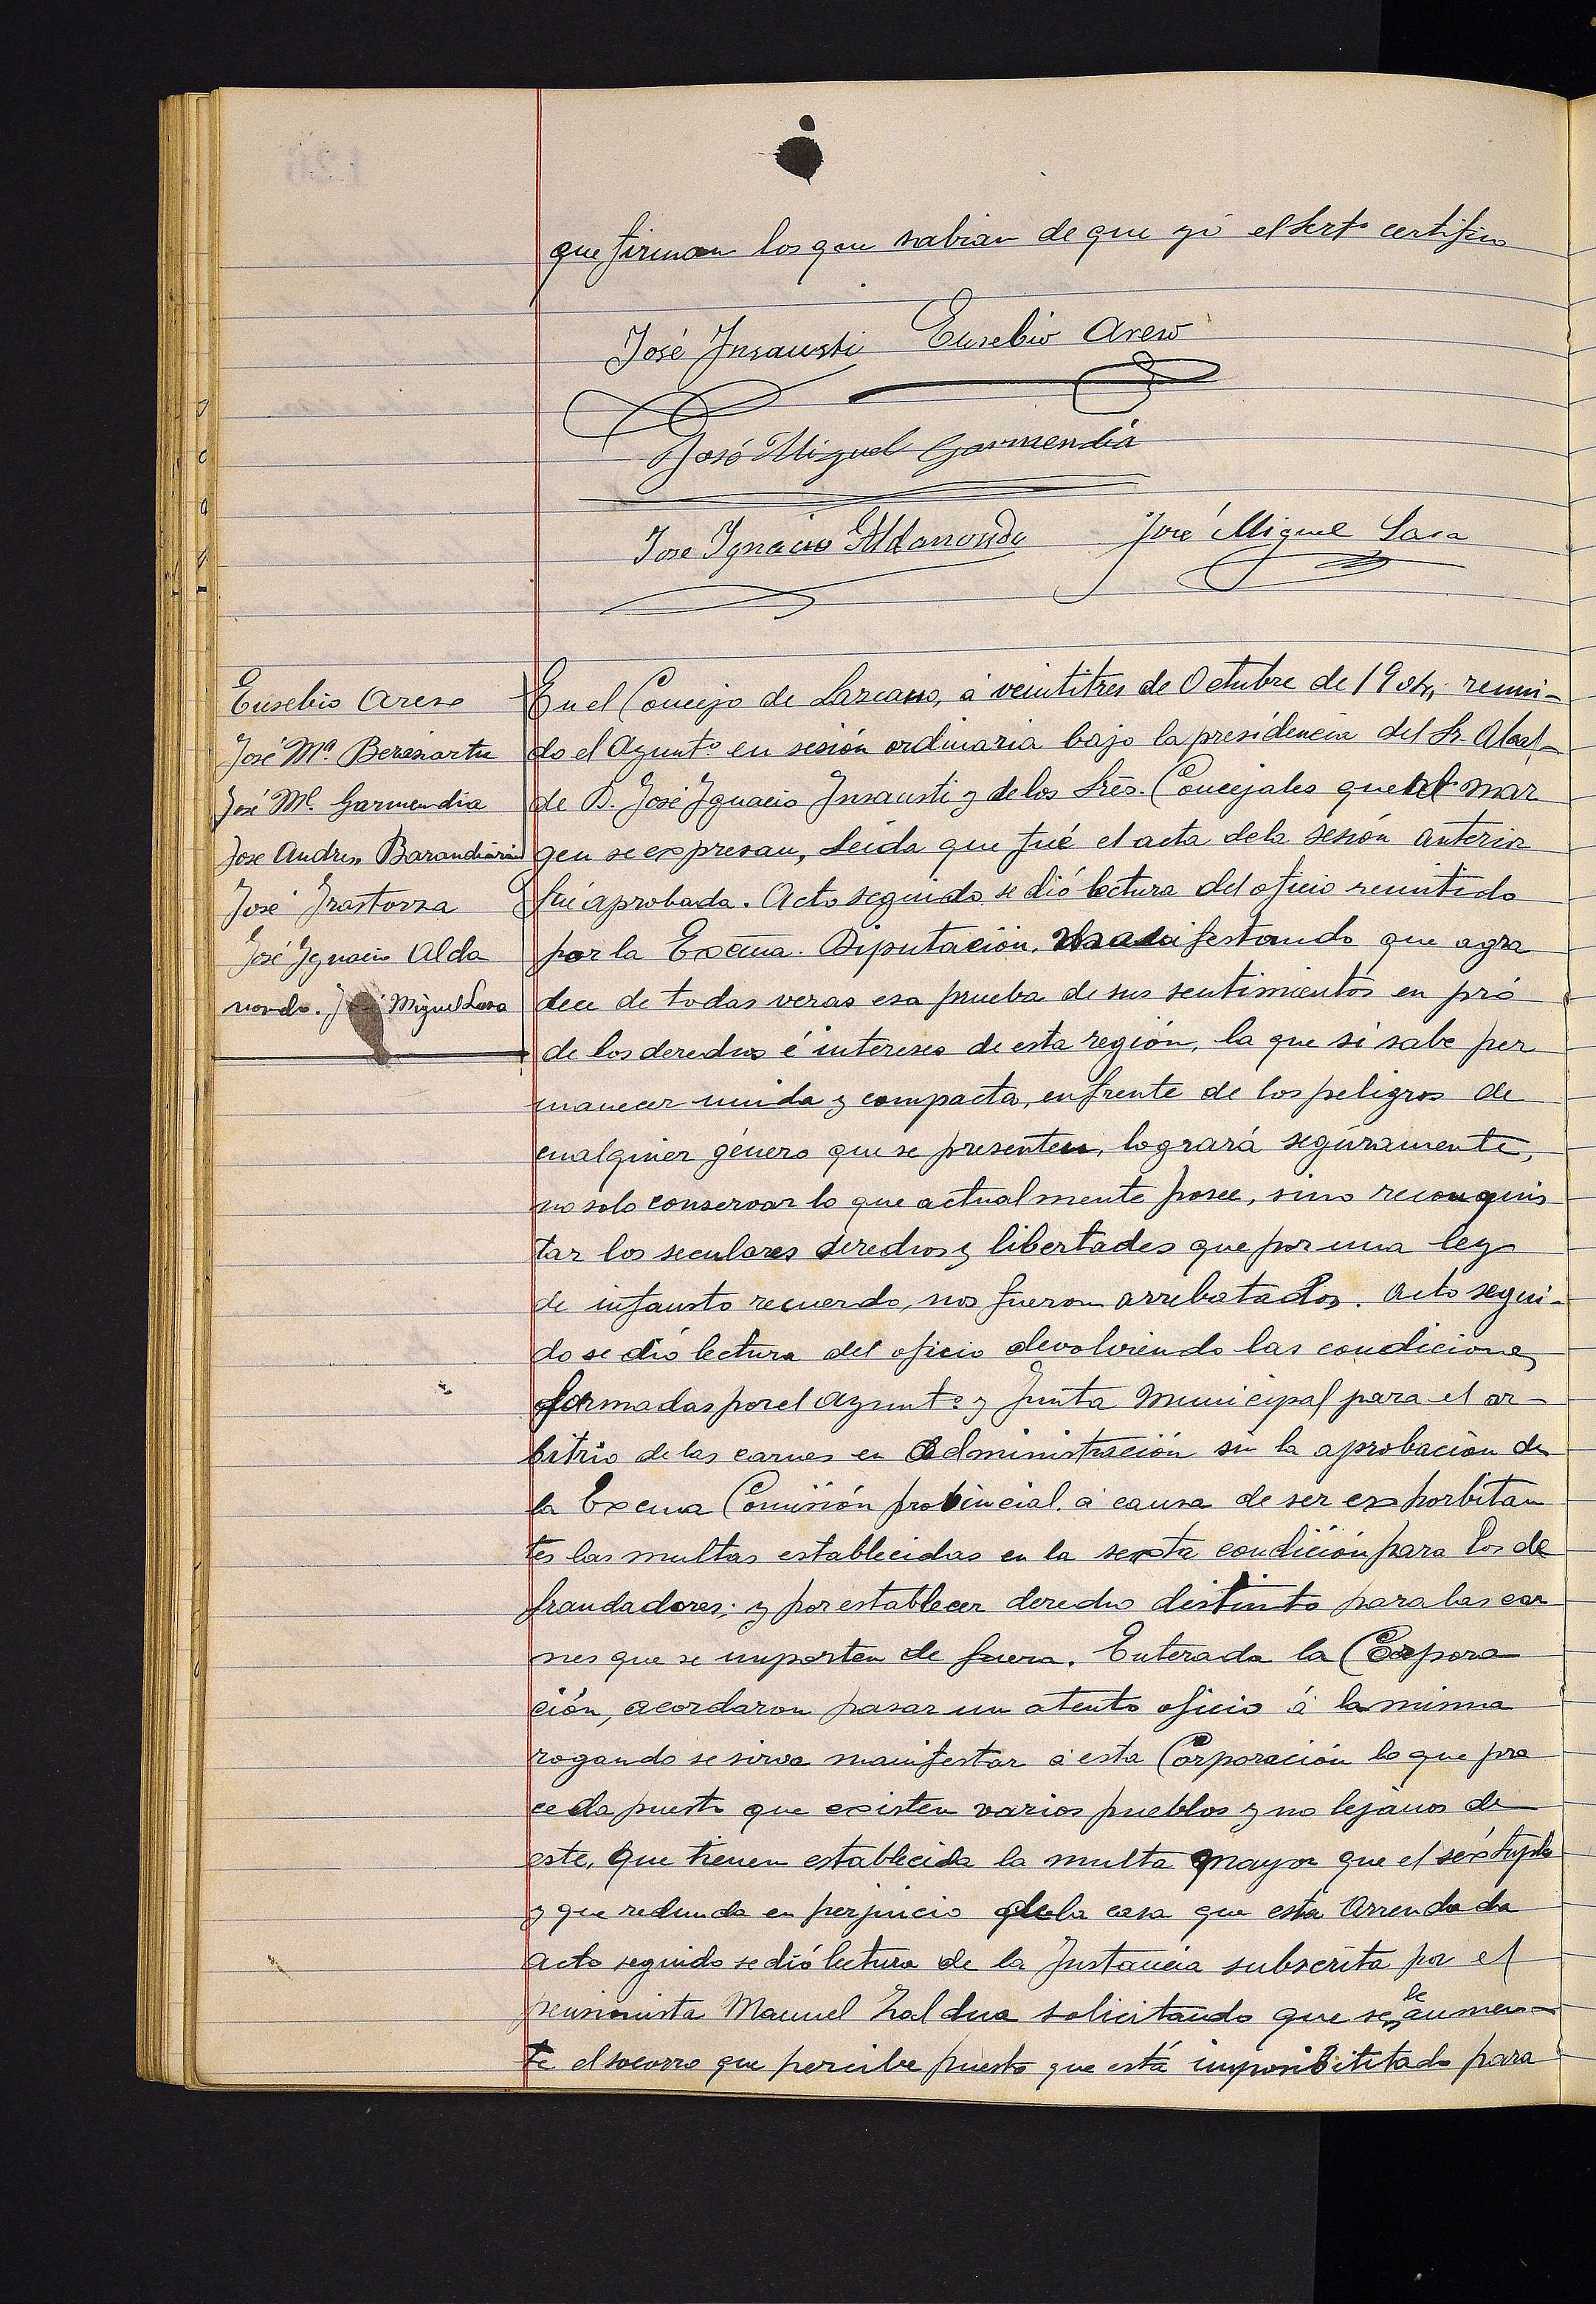 que firman los que sabian de que yó el Srto certifico
José Insausti Eusebio Areso
José Miguel Garmendia
Jose Ignacio Aldanondo José Miguel Lasa
Eusebio Areso
José Mª. Berasiartu
José Ml. Garmendia
Jose Andres Barandiarán
José Irastorza
José Ignacio Alda
nondo. José Miguel Lasa
En el Concejo de Lazcano, á veintitres de Octubre de 1904, reuni-
do el Ayuntº en sesión ordinaria bajo la presidencia del Sr. Alcal-
de D. José Ignacio Insausti y de los Srēs. Concejales que al mar
gen se expresan, Leida que fué el acta de la sesión anterior
fué aprobada. Acto seguido se dió lectura del oficio remitido
por la Excma. Diputación, manifestando que agra
dece de todas veras esa prueba de sus sentimientos en pró
de los derechos é intereses de esta región, la que si sabe per
manecer unida y compacta, enfrente de los peligros de
cualquier género que se presenten, logrará seguramente,
no solo conservar lo que actualmente posee, sino reconquis
tar los seculares derechos y libertades que por una ley
de infausto recuerdo, nos fueron arrebatados. Acto segui-
do se dió lectura del oficio devolviendo las condiciones
formadas por el Ayuntº y Junta Municipal para el ar-
bitrio de las carnes en Administración sin la aprobación de
la Excma Comisión provincial. á causa de ser exhorbitan
tes las multas establecidas en la sexta condición para los de
fraudadores; y por establecer derecho distinto para las car
nes que se importen de fuera. Enterada la Corpora
ción, acordaron pasar un atento oficio á la misma
rogando se sirva manifestar á esta Corporación lo que pro
ceda puesto que existen varios pueblos y no lejanos de
este, que tienen establecida la multa mayor que el séxtuplo
y que redunda en perjuicio de la casa que esta Arrendada
acto seguido se dió lectura de la Instancia subscrita por el
pensionista Manuel Zaldua solicitando que se le aumen-
te el socorro que percibe puesto que está imposibititado para